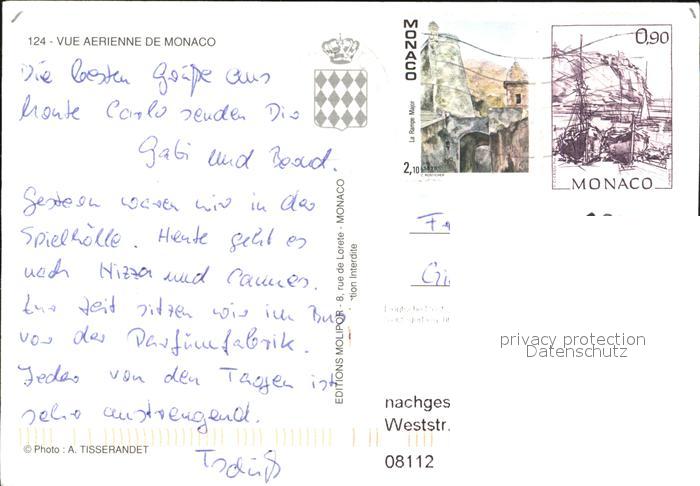 124 - VUE AERIENNE DE MONACO
Die besten Grüße aus
Monte Carlo senden Dir
Gabi und Bernd.
Gestern waren wir in der
Spielhölle. Heute geht es
nach Nizza und Cannes.
Zur Zeit sitzen wir im Bus
vor der Parfümfabrik.
Jeder von den Tagen ist
sehr anstrengend.
Tschüß
© Photo : A. TISSERANDET
EDITIONS MOLIPOR - 8, rue de Lorete - MONACO
tion Interdite
MONACO
La Rampe Major
2,10
0,90
MONACO
privacy protection
Datenschutz
nachges
Weststr.
08112